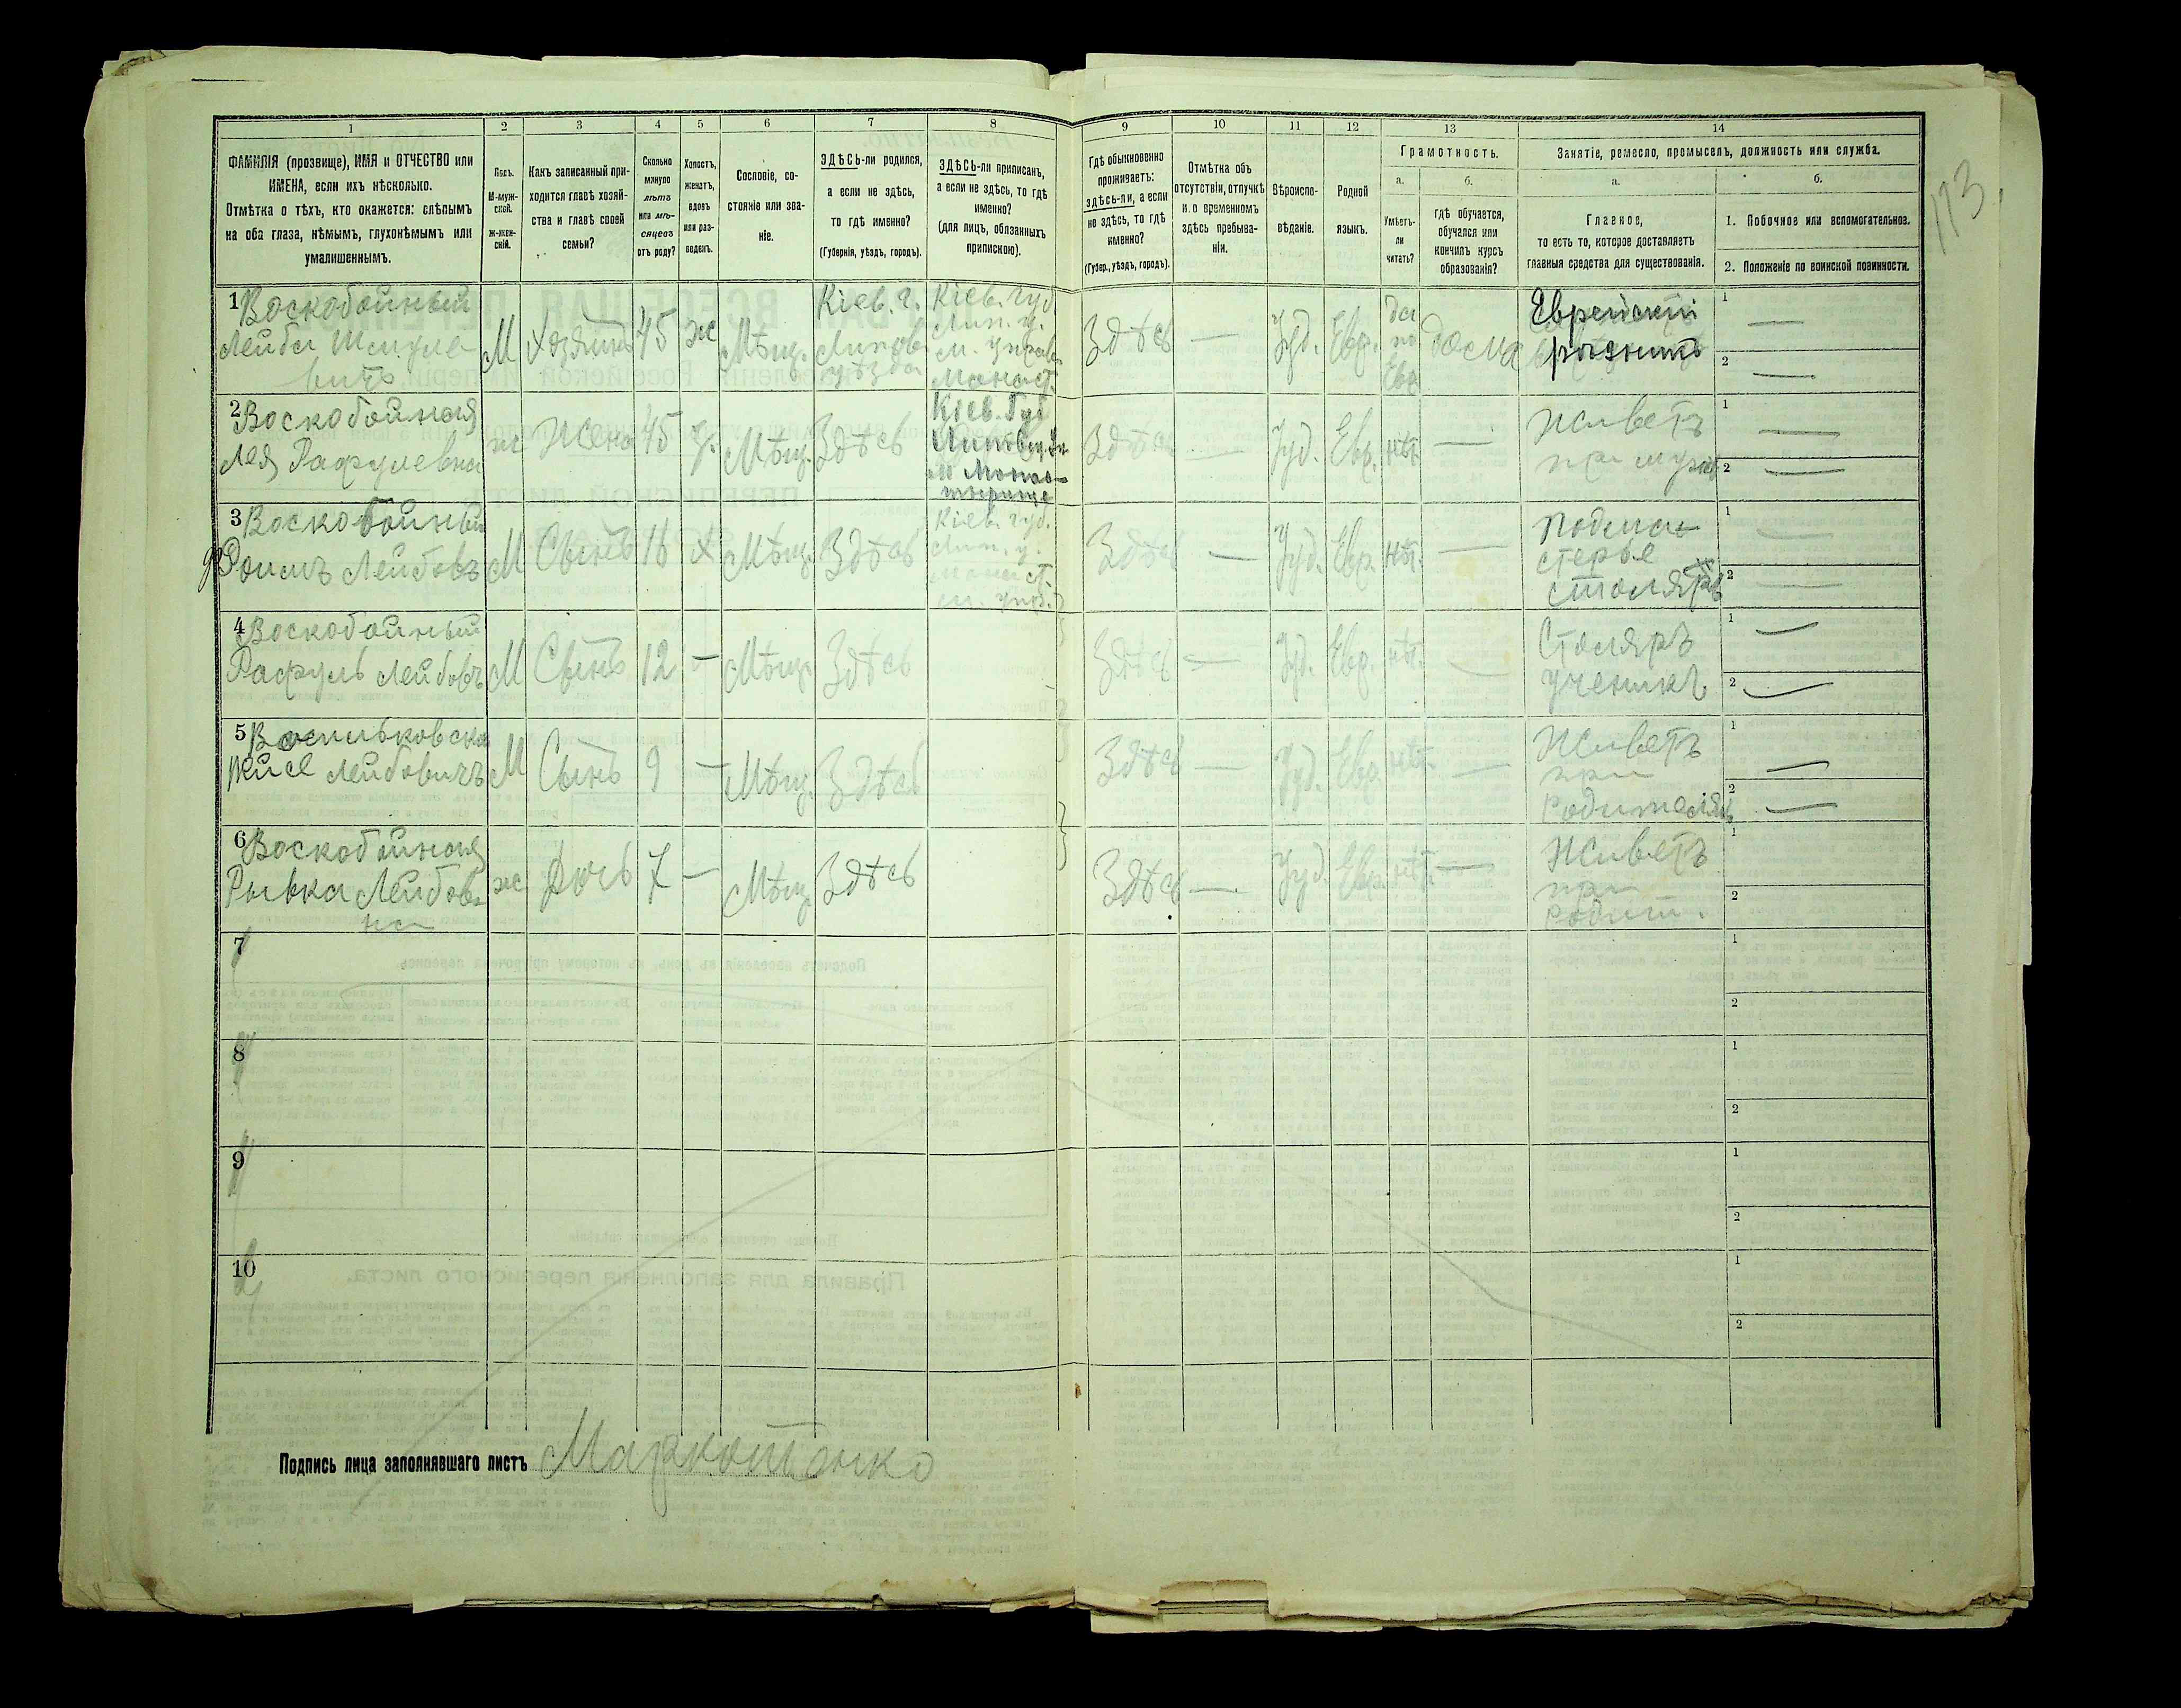 1
2
3
4
5
6
7
8
9
10
11
12
13
14
ФАМИЛІЯ (прозвище), ИМЯ и ОТЧЕСТВО или
ИМЕНА, если ихъ нѣсколько.
Отмѣтка о тѣхъ, кто окажется: слѣпымъ
на оба глаза, нѣмымъ, глухонѣмымъ или
умалишеннымъ.
Полъ.
М-муж-
ской.
Ж-жен-
скій.
Какъ записанный при-
ходится главѣ хозяй-
ства и главѣ своей
семьи?
Сколько
минуло
лѣтъ
или мѣ-
сяцевъ
отъ роду?
Холостъ,
женатъ,
вдовъ
или раз-
веденъ.
Сословіе, со-
стояніе или зва-
ніе.
ЗДѢСЬ-ли родился,
а если не здѣсь,
то гдѣ именно?
(Губернія, уѣздъ, городъ).
ЗДѢСЬ-ли приписанъ,
а если не здѣсь, то гдѣ
именно?
(для лицъ, обязанныхъ
припискою).
Гдѣ обыкновенно
проживаетъ:
здѣсь-ли, а если
не здѣсь, то гдѣ
именно?
(Губер., уѣздъ, городъ).
Отмѣтка объ
отсутствіи, отлучкѣ
и о временномъ
здѣсь пребыва-
ніи.
Вѣроиспо-
вѣданіе.
Родной
языкъ.
Грамотность.
а.
Умѣетъ-
ли
читать?
б.
гдѣ обучается,
обучался или
кончилъ курсъ
образованія?
Занятіе, ремесло, промыселъ, должность или служба.
а.
Главное,
то есть то, которое доставляетъ
главныя средства для существованія.
б.
1. Побочное или вспомогательное.
2. Положеніе по воинской повинности.
113
1 Воскобойный
Лейба Шмуле-
вичъ
М
Хозяинъ
45
ж
Мѣщ.
Кіев. г.
Липов.
уѣзда
Кіев. губ.
Лип. у.
м. управ.
Монаст.
Здѣсь
—
Іуд.
Евр.
да
по
Евр.
дома
Еврейскій
рѣзникъ
1 —
2 —
2 Воскобойная
Лея Рафулевна
ж
Жена
45
з.
Мѣщ.
Здѣсь
Кіев. Губ
Липов. у.
М Монас-
тырище
Здѣсь
—
Іуд.
Евр.
нѣт.
—
Живетъ
при мужѣ
1 —
2 —
3 Воскобойный
Лейбовъ
М
Сынъ
16
х
Мѣщ.
Здѣсь
Кіев. губ.
Лип. у.
Монаст.
м. упр.
Здѣсь
—
Іуд.
Евр.
нѣт.
—
Подма-
стерье
столяръ
1 —
2 —
4 Воскобойный
Рафуль Лейбовъ
М
Сынъ
12
—
Мѣщ.
Здѣсь
Здѣсь
—
Іуд.
Евр.
нѣт.
—
Столяръ
ученикъ
1 —
2 —
5
Лейбовичъ
М
Сынъ
9
—
Мѣщ.
Здѣсь
Здѣсь
—
Іуд.
Евр.
нѣт.
—
Живетъ
при
родителяхъ
1 —
2 —
6 Воскобойная
Рывка Лейбов-
на
ж
Дочь
7
—
Мѣщ.
Здѣсь
Здѣсь
—
Іуд.
Евр.
нѣт.
—
Живетъ
при
родит.
1
2
7
1
2
8
1
2
9
1
2
10
1
2
Подпись лица заполнявшаго листъ